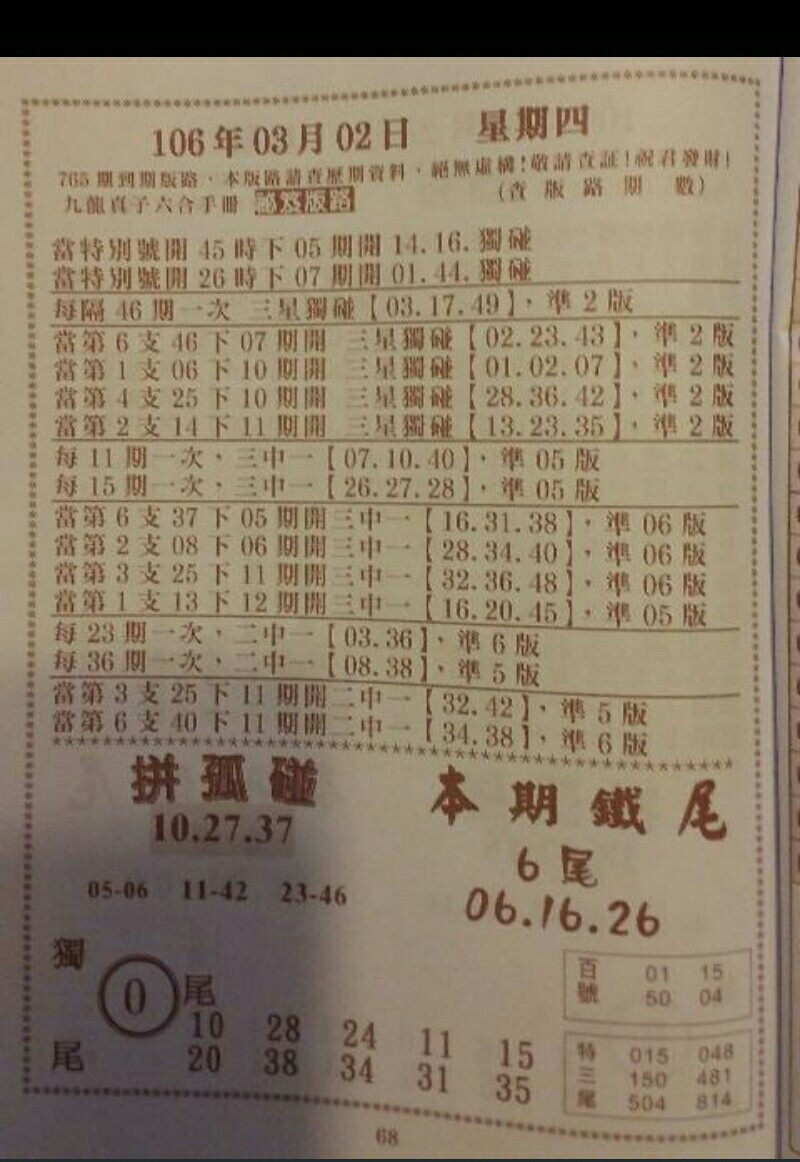 106年03月02日 星期四
765期到期版路，本版路請查歷期資料，絕無虛構！敬請查証！祝君發財！
九龍真子六合手冊 (查版路期數)
當特別號開 45 時下 05 期開 14.16. 獨碰
當特別號開 26 時下 07 期開 01.44. 獨碰
每隔 46 期一次 三星獨碰【03.17.49】，準 2 版
當第 6 支 46 下 07 期開 三星獨碰【02.23.43】，準 2 版
當第 1 支 06 下 10 期開 三星獨碰【01.02.07】，準 2 版
當第 4 支 25 下 10 期開 三星獨碰【28.36.42】，準 2 版
當第 2 支 14 下 11 期開 三星獨碰【13.23.35】，準 2 版
每 11 期一次，三中一【07.10.40】，準 05 版
每 15 期一次，三中一【26.27.28】，準 05 版
當第 6 支 37 下 05 期開三中一【16.31.38】，準 06 版
當第 2 支 08 下 06 期開三中一【28.34.40】，準 06 版
當第 3 支 25 下 11 期開三中一【32.36.48】，準 06 版
當第 1 支 13 下 12 期開三中一【16.20.45】，準 05 版
每 23 期一次，二中一【03.36】，準 6 版
每 36 期一次，二中一【08.38】，準 5 版
當第 3 支 25 下 11 期開二中一【32.42】，準 5 版
當第 6 支 40 下 11 期開二中一【34.38】，準 6 版
拼孤碰
10.27.37
05-06 11-42 23-46
本期鐵尾
6尾
06.16.26
獨 0 尾
尾
10 28 24 11 15
20 38 34 31 35
百號
01 15
50 04
特三尾
015 048
150 481
504 814
68